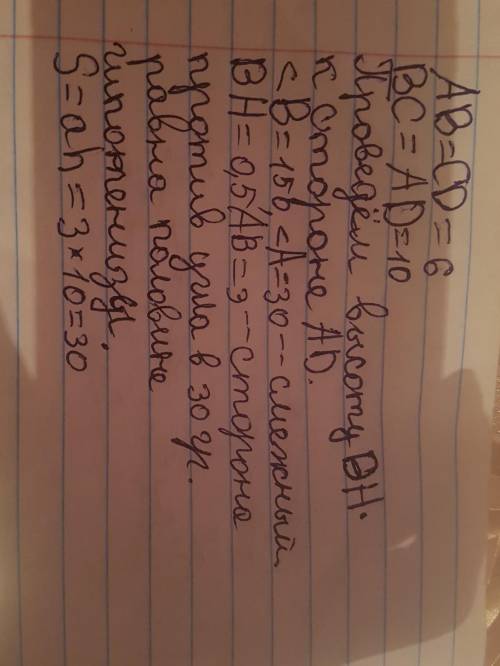 AB=CD=6
BC=AD=10
Проведём высоту BH.
к стороне AD.
<B=150 <A=30-смежный
BH=0,5AB=3-сторона
против угла в 30 гр.
равна половине
гипотенизы.
S=ah=3*10=30